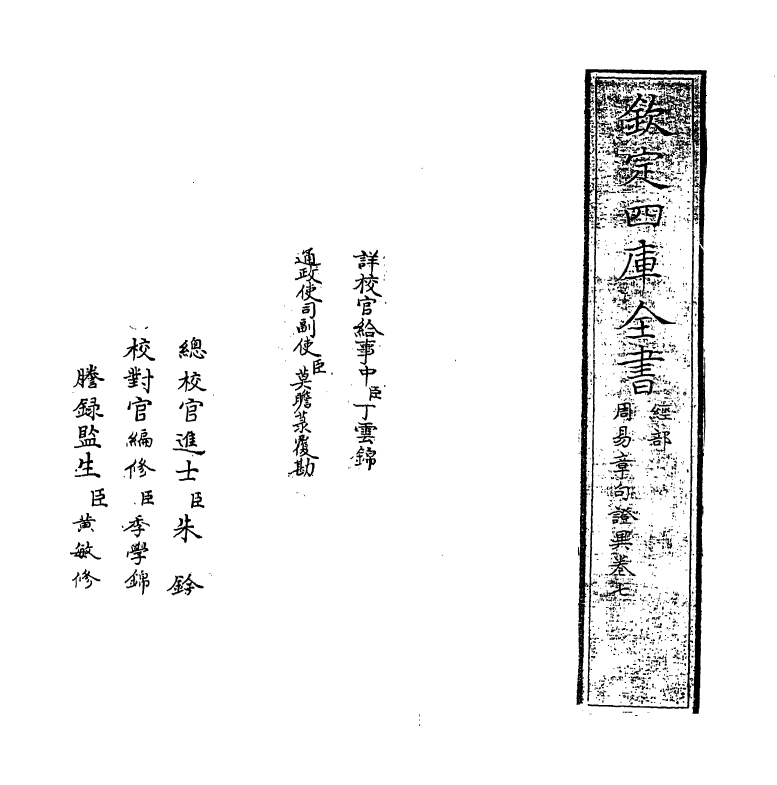 欽定四庫全書
經部
周易章句證異卷七
詳校官給事中臣丁雲錦
通政使司副使臣莫瞻菉覆勘
總校官進士臣朱鈐
校對官編修臣季學錦
謄録監生臣黄敏修